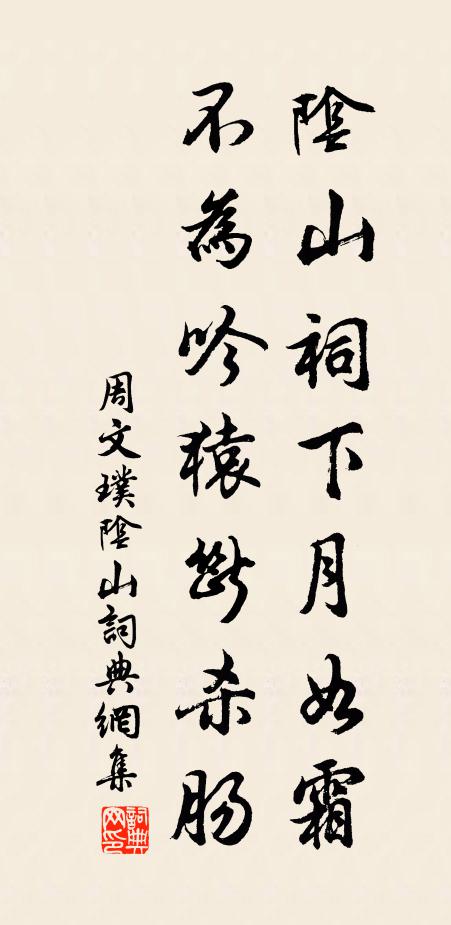 陰山祠下月如霜
不為吟猿斷杀肠
周文璞陰山詞典網集
詞典网印